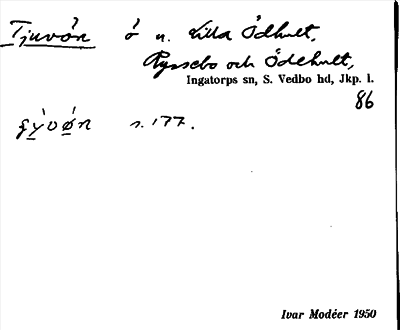 Tjuvön ö n. Lilla Ödhult,
Ryssebo och Ödehult,
Ingatorps sn, S. Vedbo hd, Jkp. l.
86
s. 177.
Ivar Modéer 1950